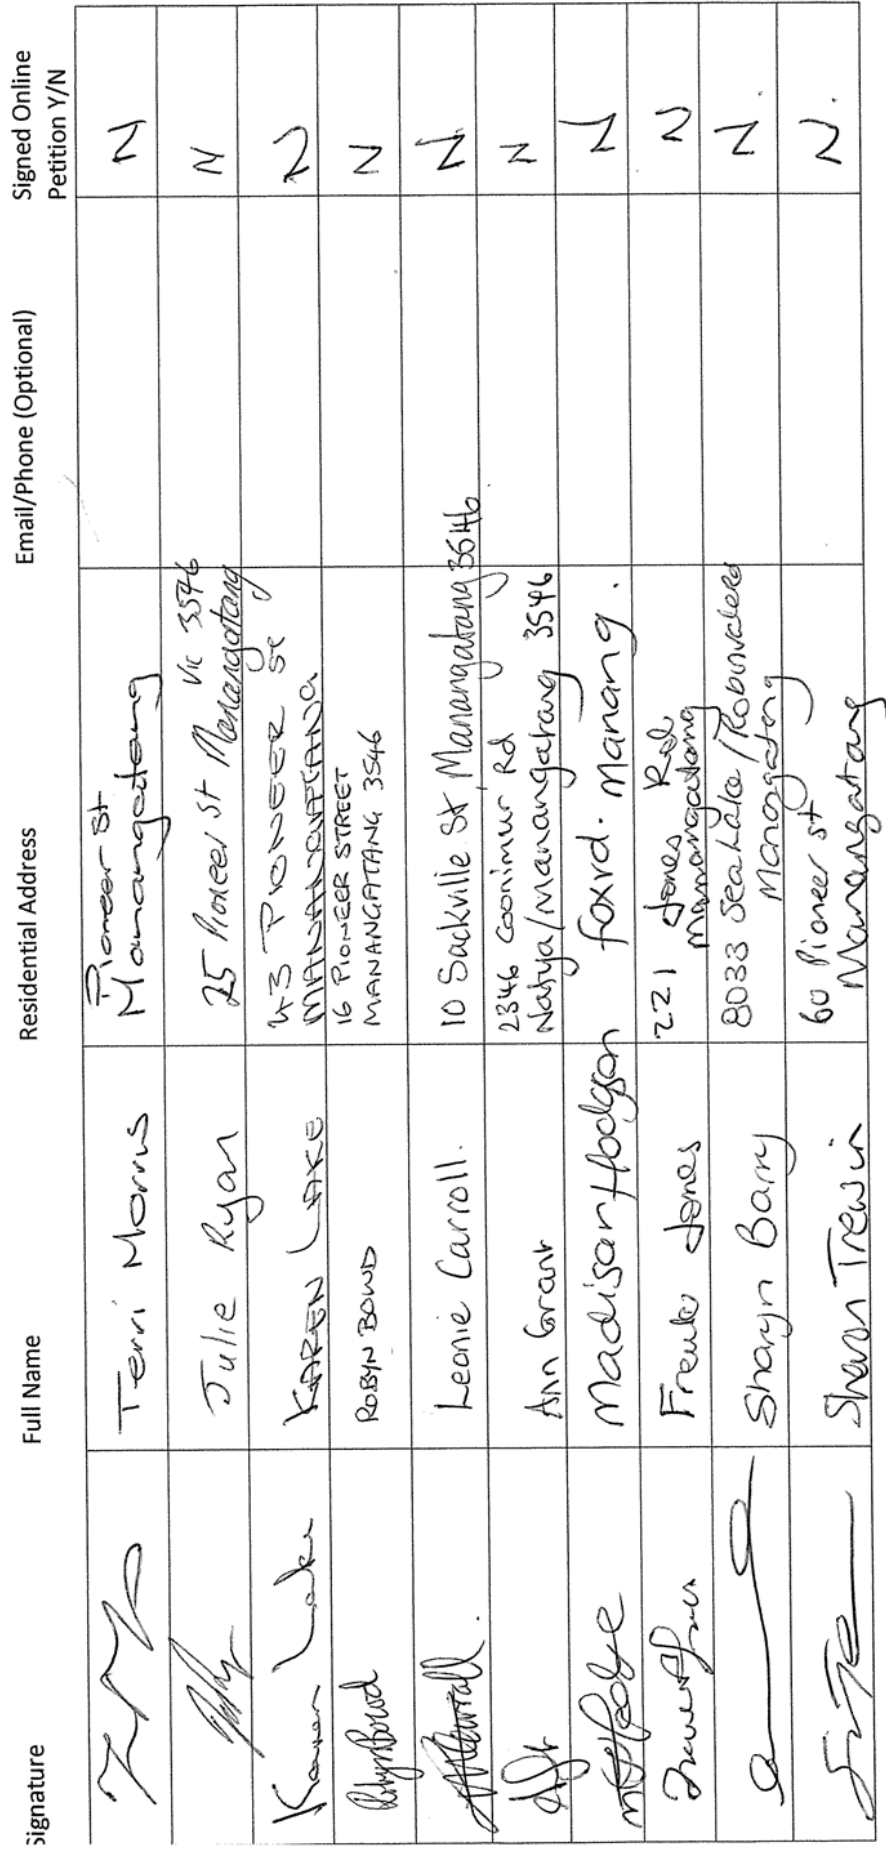 Signature Full Name Residential Address Email/Phone (Optional) Signed Online
Petition Y/N
Terri Morris Pioneer St N
Manangatang
Julie Ryan 25 Pioneer St Manangatang N
Vic 3546
Karen Lake KAREN LAKE 43 PIONEER St N
MANANGATANG
RobynBowd ROBYN BOWD 16 PIONEER STREET N
MANANGATANG 3546
Leonie Carroll. 10 Sackville St Manangatang 3546 N
Ann Grant 2346 Coonimur Rd N
Natya/Manangatang 3546
Madison Hodgson foxrd. Manang. N
Jones 221 Jones Rd N
Manangatang
Sharyn Barry 8033 SeaLake/Robinvale Rd N.
Manangatang
Sharon Trewin 60 Pioneer St N.
Manangatang